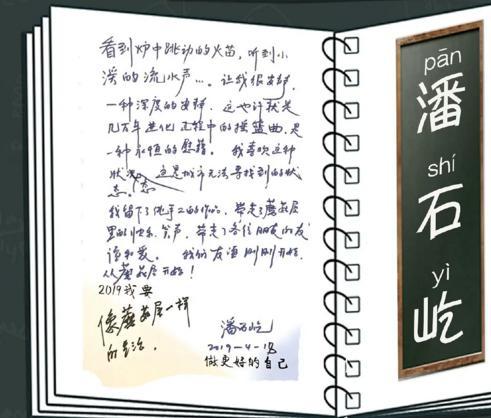 看到炉中跳动的火苗，听到小
溪的流水声…。让我很安静，
一种深度的安静。这也许就是
几万年进化过程中的摇篮曲，是
一种永恒的慰藉。我喜欢这种
状态。这是城市无法寻找到的状
态。
我留下了
带走了蘑菇屋
里的快乐、笑声，带走了各位朋友的友
谊和爱。我们友谊刚刚开始，
从蘑菇屋开始！
2019我要
像蘑菇屋一样
的生活。
潘石屹
2019-4-18
做更好的自己
pān
潘
shí
石
yì
屹